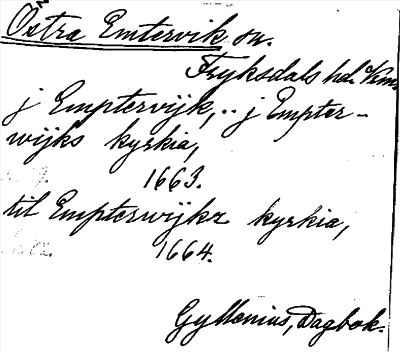 Östra Emtervik sn.
Fryksdals hd. Vrm.
j Emptervijk, .. j Empter-
wijks kyrkia,
1663.
til Empterwijkz kyrkia,
1664.
Gyllenius, Dagbok.